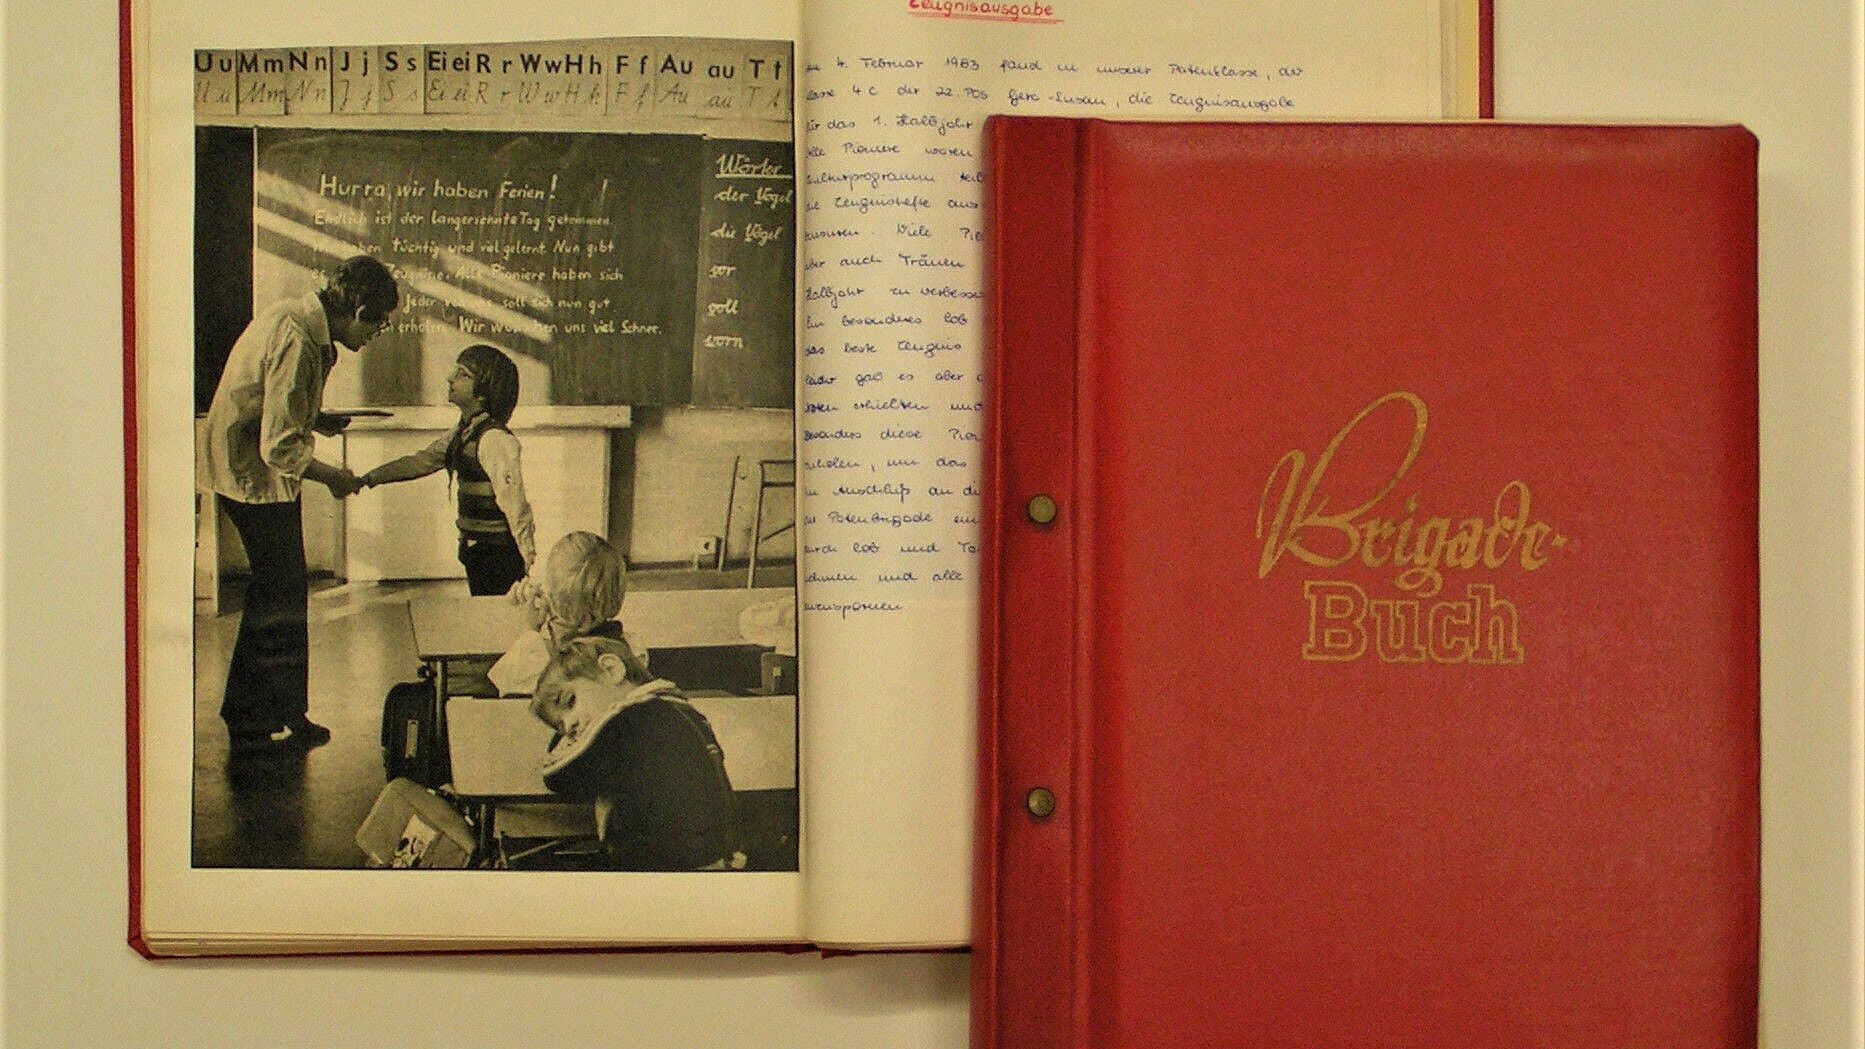 Uu Mm Nn Jj Ss Ei ei Rr Ww Hh Ff Au au Tt
Uu Mm Nn Jj Ss Ei ei Rr Ww Hh Ff Au au Tt
Hurra, wir haben Ferien!
Endlich ist der langersehnte Tag gekommen.
haben tüchtig und viel gelernt. Nun gibt
es Zeugnisse. Alle Pioniere haben sich
Jeder soll sich nun gut
erholen. Wir wünschen uns viel Schnee.
Wörter
der Vogel
die Vögel
vor
voll
vorn
Zeugnisausgabe
4. Februar 1983 fand in unserer Patenklasse, der
4c der 22. POS Gera-Lusan, die Zeugnisausgabe
für das 1. Halbjahr
Alle Pioniere waren
Kulturprogramm
die Zeugnishefte aus
Viele
aber auch Tränen
Halbjahr zu
Ein besonderes Lob
das beste Zeugnis
Leider gab es aber
erhielten und
Besonders diese
um das
Im Anschluß an
Patenbrigade
Lob und
und alle
Brigade-
Buch